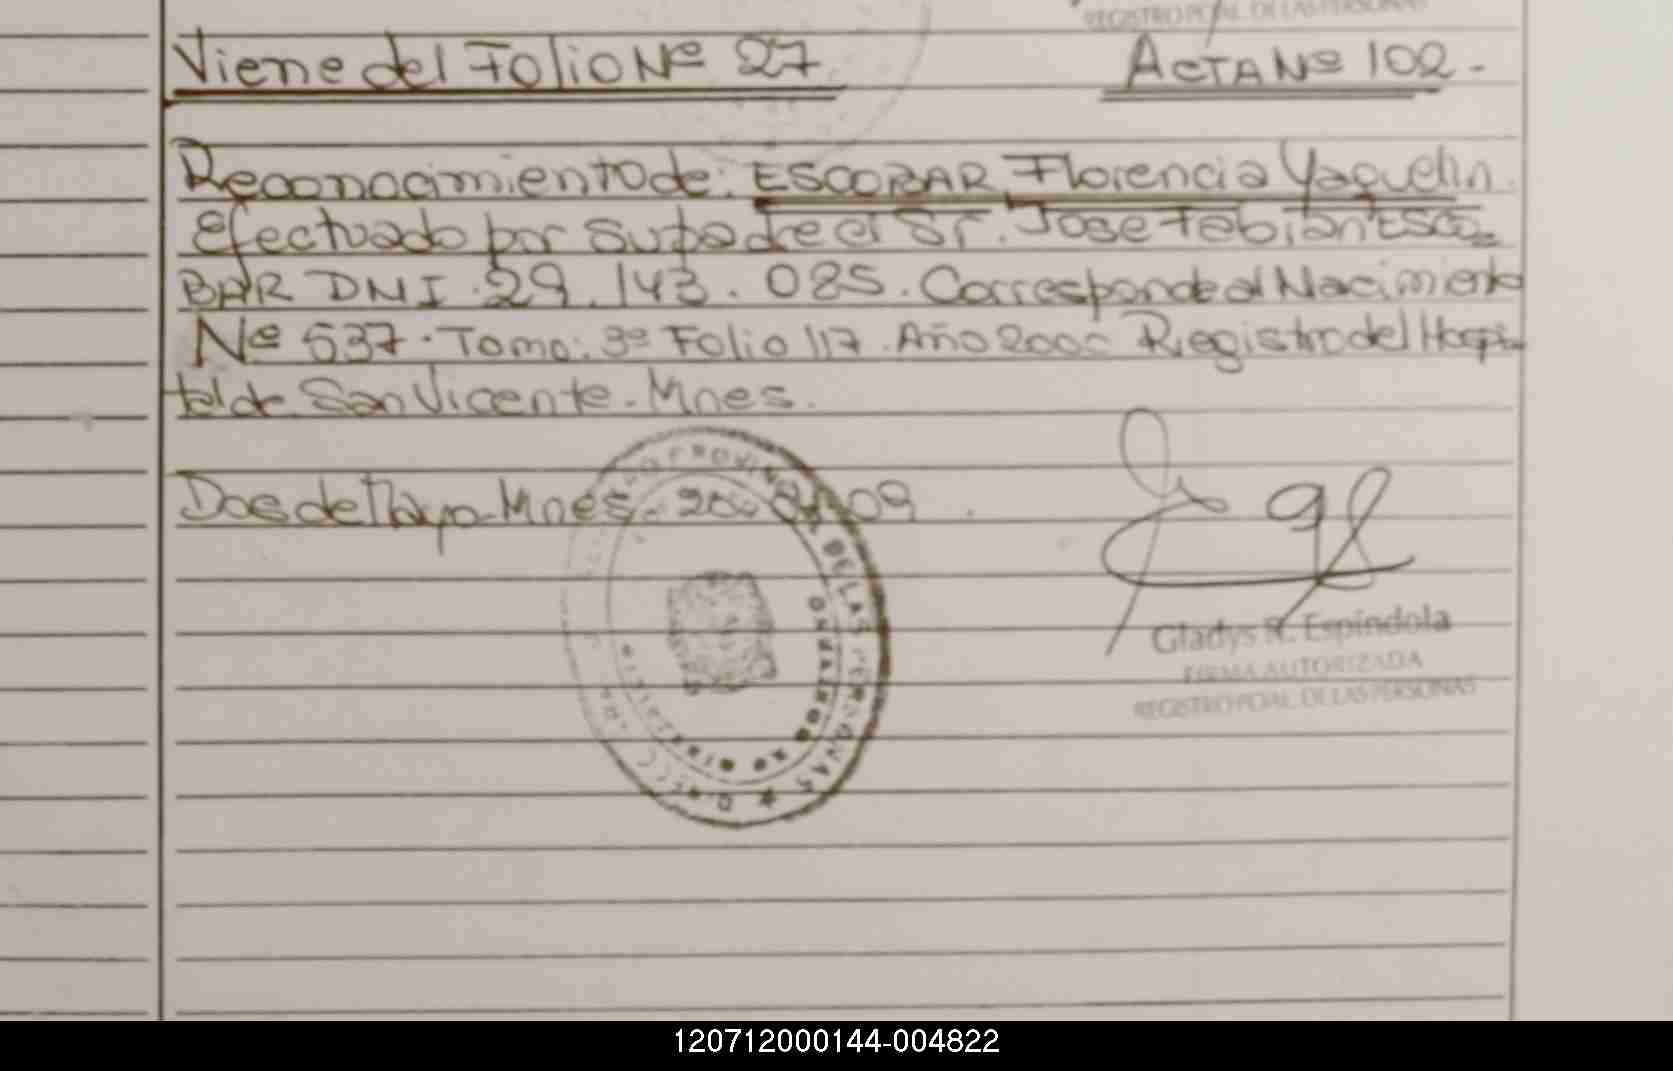 REGISTRO PCIAL. DE LAS PERSONAS
Viene del Folio Nº 27
ACTA Nº 102.-
Reconocimiento de: ESCOBAR, Florencia Yaquelin.
Efectuado por su padre el Sr. Jose Fabian ESCO-
BAR DNI. 29.143.085. Corresponde al Nacimiento
Nº 537. Tomo: 3º Folio 117. Año 200 Registro del Hospi
tal de San Vicente-Mnes.
Dos de Mayo-Mnes-20 09
Gladys R. Espíndola
FIRMA AUTORIZADA
REGISTRO PCIAL. DE LAS PERSONAS
DE LAS PERSONAS
120712000144-004822